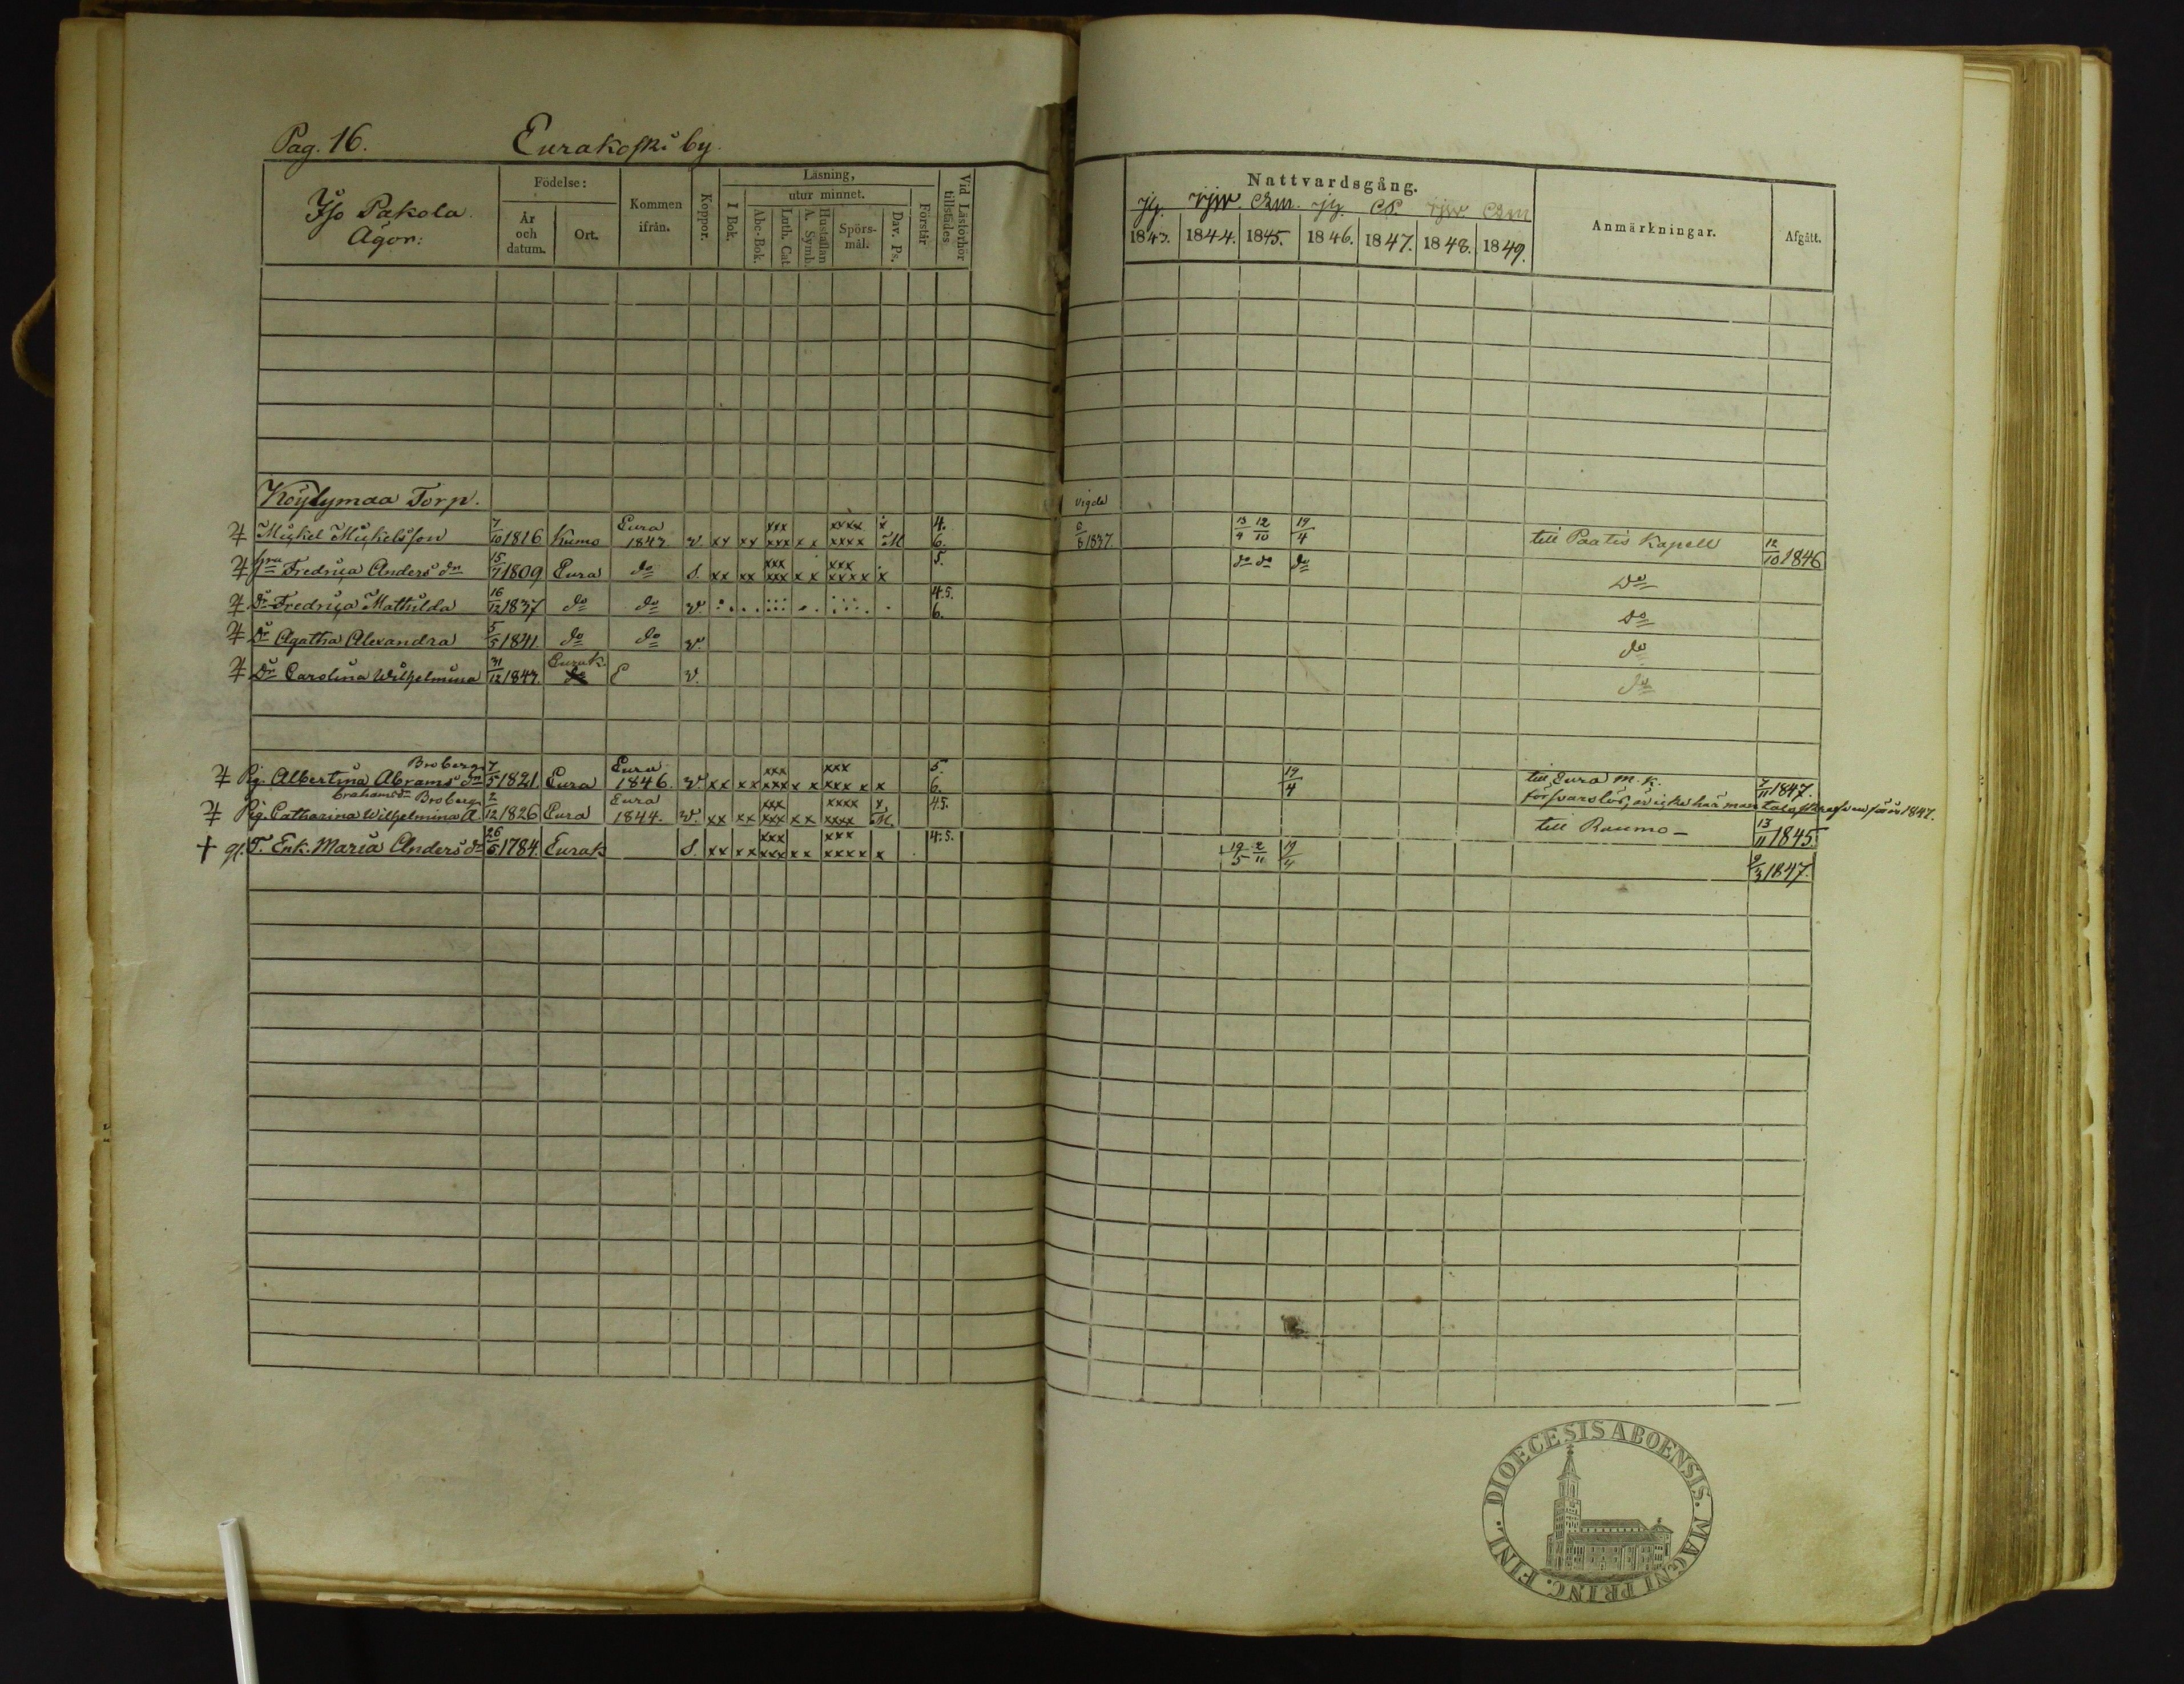 Pag. 16. Eurakoski by.
Iso Pakola.
Ägor:
Födelse:
År och datum.
Ort.
Kommen ifrån.
Koppor.
Läsning,
I Bok.
utur minnet.
Abc-Bok.
Luth. Cat.
Hustaflan A. Symb.
Spörs-mål.
Dav. Ps.
Förstår
Vid Läsförhör tillstädes
Nattvardsgång.
1843. 1844. 1845. 1846. 1847. 1848. 1849.
Anmärkningar.
Afgått.
Köylymaa Torp. vigde
Mickel Mickelsson 7/10 1816 Kumo Eura 1843 v. xx xx xxx xxx x x xxxx xxxx 4. 6. 1837. 12/10 19/4 till Paatis Kapell 12/10 1846
hru Fredrica Anders dr 15/7 1809 Eura do S. xx xx xxx xxx x x xxx xxxx x 5. do do do Do
Dr Fredrica Mathilda 16/12 1837 do do v. 4.5. 6. Do
Dr Agatha Alexandra 5/5 1841. do do v. do
Dr Carolina Wilhelmina 31/12 1843. Eurak. do E v. do
Broberg
Pig. Albertina Abrams dr 7/5 1821. Eura Eura 1846. v. xx xx xxx xxxx x x xxx xxx x x 5. 6. 19/4 till Eura M. K. 7/11 1847.
brahamsdr Broberg
Pig. Catharina Wilhelmina A. 2/12 1826 Eura Eura 1844. v. xx xx xxx xxx xx xxxx xxxx x 4.5. försvarslös, är icke här mantalsskrefven för år 1847.
till Raumo - 13/11 1845.
† gl. T. Enk. Maria Anders dr 26/6 1784. Eurak S. xx xx xxx xxx xx xxx xxxx x 4.5. 19/5 2/11 19/4 9/3 1847.
DIOECESIS ABOENSIS. MAGNI PRINC. FINL.